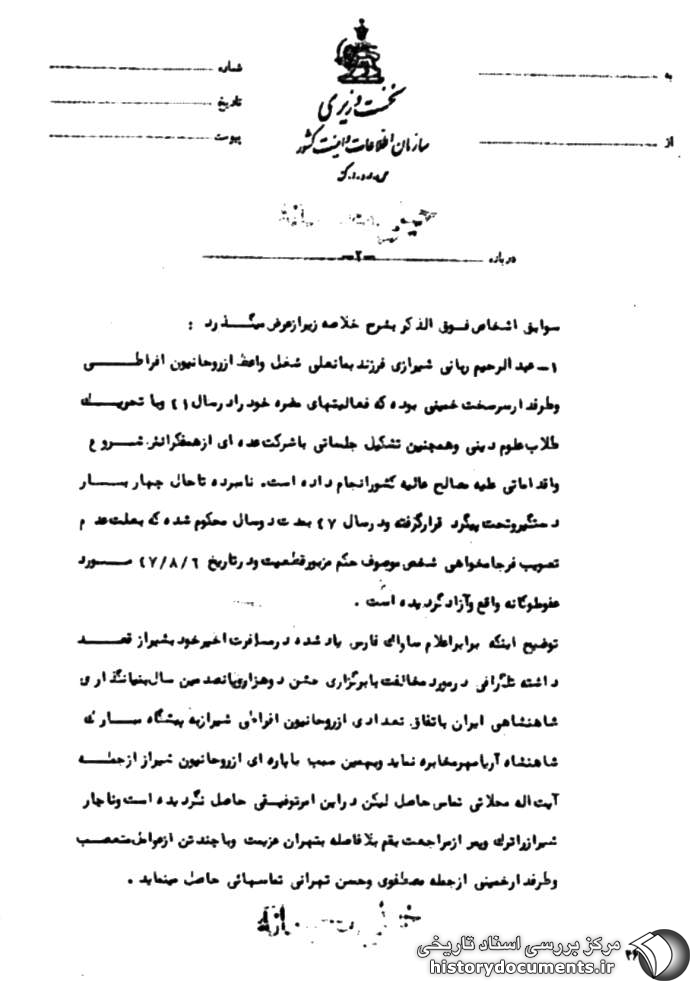 نخست وزیری
سازمان اطلاعات و امنیت کشور
س.ا.و.ا.ک
به
از
شماره
تاریخ
پیوست
درباره
-۲-
سوابق اشخاص فوق الذکر بشرح خلاصه زیر از عرض میگذرد :
۱- عبدالرحیم ربانی شیرازی فرزند بمانعلی شغل واعظ از روحانیون افراطی
وطرفدار سرسخت خمینی بوده که فعالیتهای مضره خود را در سال ۴۱ وبا تحریک
طلاب علوم دینی وهمچنین تشکیل جلساتی باشرکت عده ای از همفکرانش شروع
واقداماتی علیه مصالح عالیه کشور انجام داده است. نامبرده تاحال چهار بار
دستگیر وتحت پیگرد قرار گرفته ودر سال ۴۷ بمدت دوسال محکوم شده که بعلت عدم
تصویب فرجامخواهی شخص موصوف حکم مزبور قطعیت ودر تاریخ ۴۷/۸/۶ مورد
عفو ملوکانه واقع وآزاد گردیده است .
توضیح اینکه برابر اعلام ساواک فارس یاد شده در مسافرت اخیر خود بشیراز قصد
داشته تلگرافی در مورد مخالفت با برگزاری جشن دوهزار و پانصدمین سال بنیانگذاری
شاهنشاهی ایران باتفاق تعدادی از روحانیون افراطی شیراز به پیشگاه مبارک
شاهنشاه آریامهر مخابره نماید وبهمین سبب با پاره ای از روحانیون شیراز از جمله
آیت اله محلاتی تماس حاصل لیکن در این امر توفیقی حاصل نگردیده است وناچار
شیراز را ترک وپس از مراجعت بقم بلافاصله بتهران عزیمت وبا چندتن از عوامل متعصب
وطرفدار خمینی از جمله مصطفوی وحسن تهرانی تماسهائی حاصل مینماید .
مرکز بررسی اسناد تاریخی
historydocuments.ir